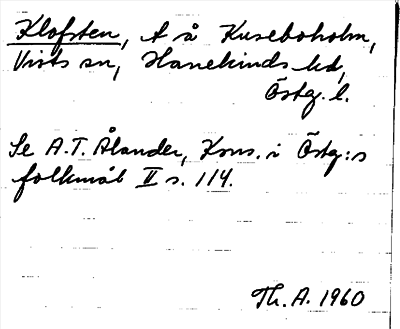 Klofsten, t å Kuseboholm,
Vists sn, Hanekinds hd,
Östg. l.
Se A.T. Ålander, Kons. i Östg:s
folkmål II s. 114.
Th. A. 1960